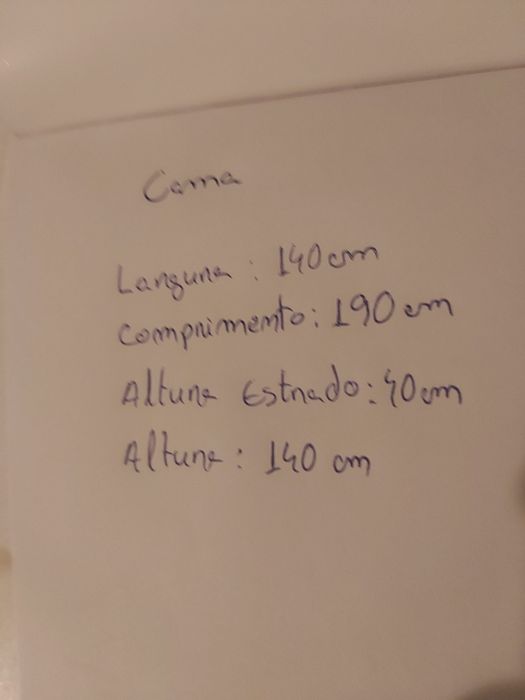 Cama
Largura: 140cm
Comprimento: 190 cm
Altura Estrado: 40cm
Altura: 140 cm